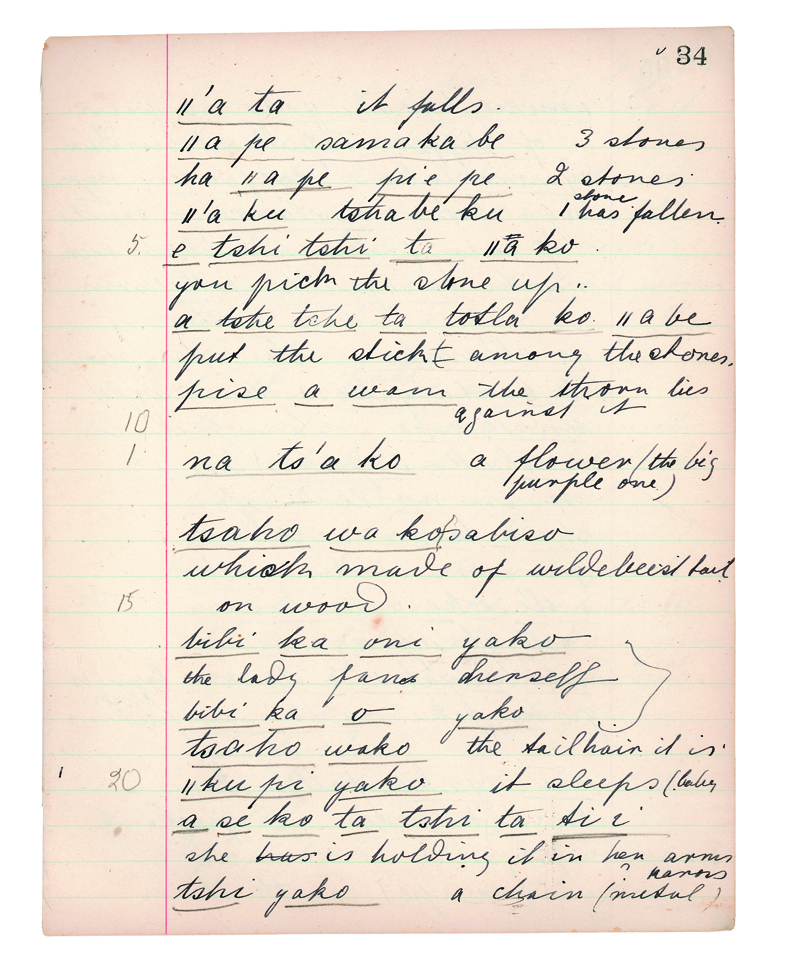 34
ǁ'a ta it falls.
ǁa pe samaka be 3 stones
ha ǁa pe pie pe 2 stones
ǁ'a ku tshabe ku 1 stone has fallen.
5. e tshi tshi ta ǁa ko.
you pick the stone up..
a tshe tche ta totla ko ǁa be
put the stick among the stones.
pise a wam the thorn lies
10 against it
1 na ts'a ko a flower (the big
purple one)
tsaho wa ko sabiso
which made of wildebeest tail
15 on wood.
bibi ka oni yako
the lady fans herself
bibi ka o yako
tsaho wako the tailhair it is
20 ǁku pi yako it sleeps (baby
a se ko ta tshi ta ti i
she has is holding it in her arms
tshi yako a chain (metal)